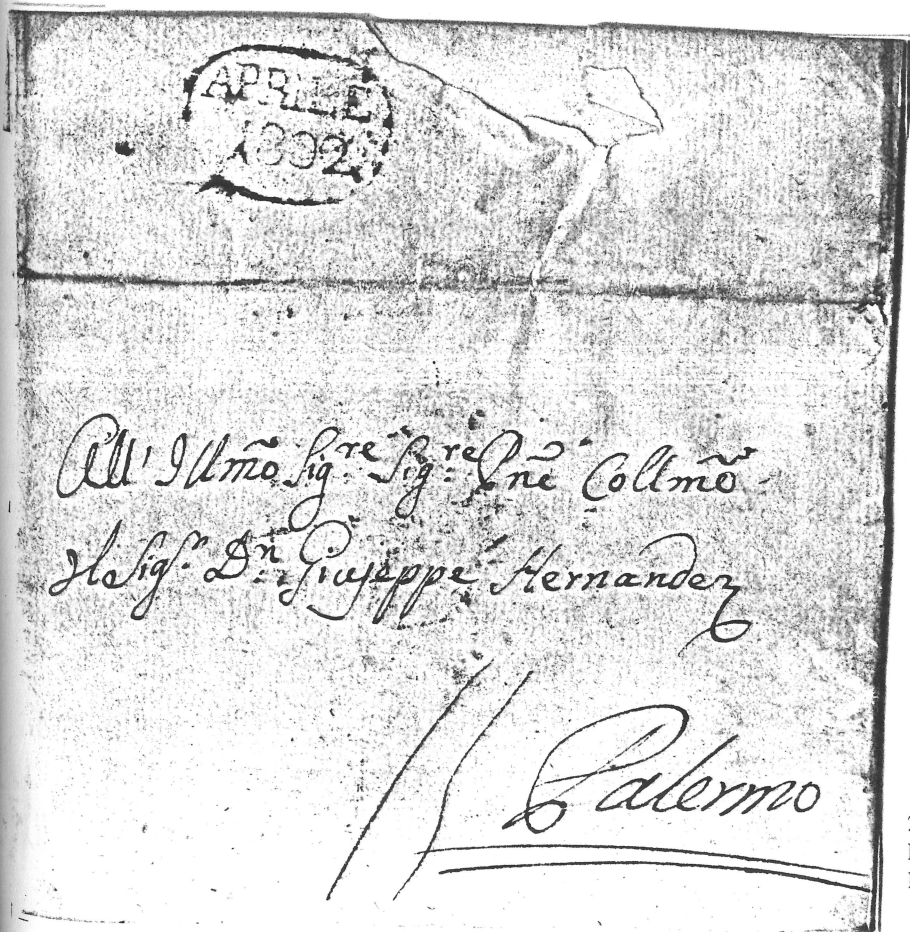 APRILE
1802
All' Illmõ Sig.re Sig.re Pnẽ Collmõ
Il Sig.r D.n Giuseppe Hernandez
Palermo